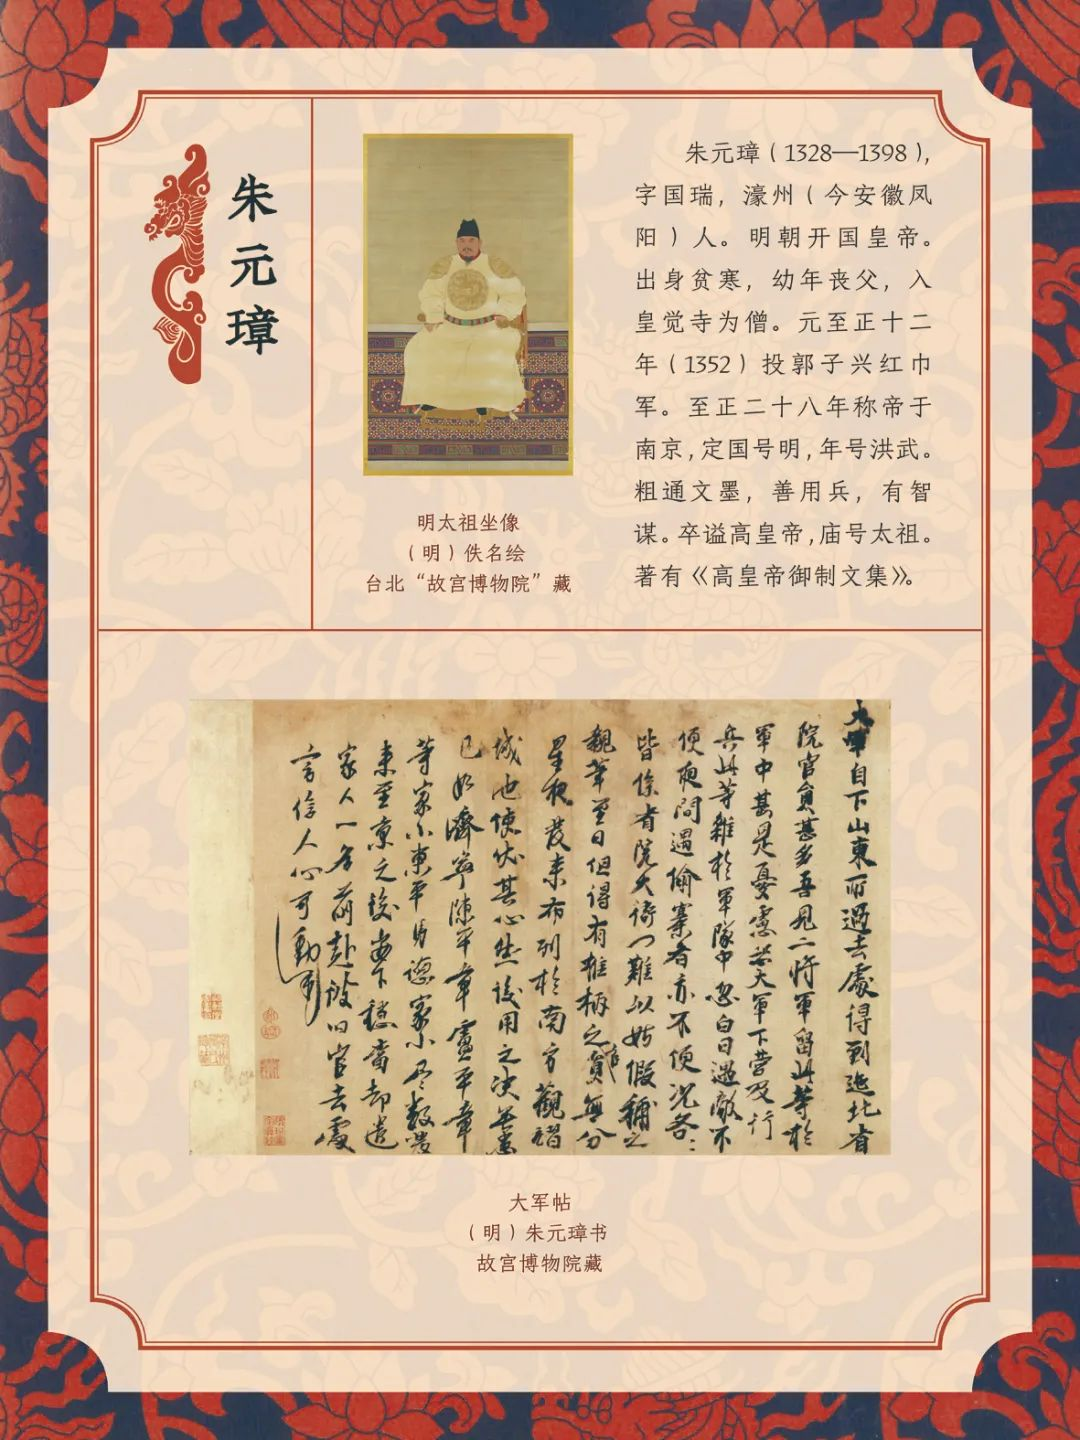 朱元璋
明太祖坐像
（明）佚名绘
台北“故宫博物院”藏
朱元璋（1328—1398），
字国瑞，濠州（今安徽凤
阳）人。明朝开国皇帝。
出身贫寒，幼年丧父，入
皇觉寺为僧。元至正十二
年（1352）投郭子兴红巾
军。至正二十八年称帝于
南京，定国号明，年号洪武。
粗通文墨，善用兵，有智
谋。卒谥高皇帝，庙号太祖。
著有《高皇帝御制文集》。
大軍自下山東所過去處得到迤北省
院官員甚多吾見二將軍留此等於
軍中甚是憂慮恐大軍下營及行
兵此等雜於軍隊中忽白日遇敵不
便夜間遇偷寨者亦不便況各
皆係省院大衙门難以姑假補之
觀筆至日但得有椎柄之官員無分
星夜發來布列於南方觀
城池使伏其心然後用之決無患
已如濟寧陳平章盧平章
等家小東平馬德家小尽數發
來至京之後安下穩當却遣
家人一名前赴彼旧官去處
言信人心可動
大军帖
（明）朱元璋书
故宫博物院藏